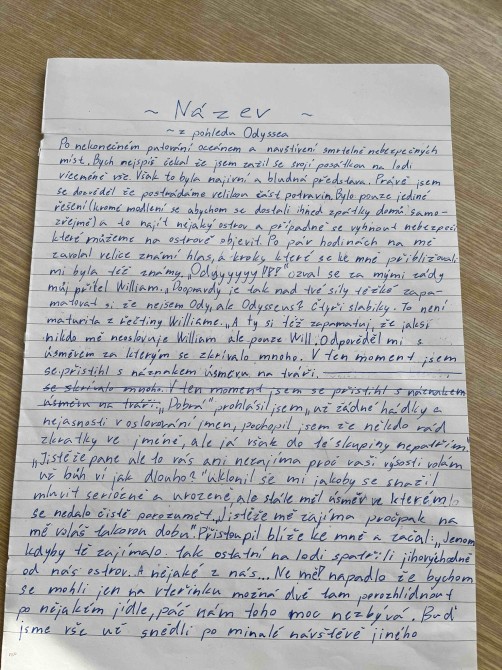 ~ Název ~
~ z pohledu Odyssea
Po nekonečném putování oceánem a navštívení smrtelně nebezpečných
míst. Bych nejspíš čekal že jsem zažil se svojí posátkou na lodi
víceméně vše. Však to byla naivní a bludná představa. Právě jsem
se dozvěděl že postrádáme velikou část potravin. Bylo pouze jediné
řešení (kromě modlení se abychom se dostali ihned zpátky domů samo-
zřejmě) a to najít nějaký ostrov a případně se vyhnout nebezpečí
které můžeme na ostrově objevit. Po pár hodinách na mě
zavolal velice známí hlas, a kroky které se ke mně přibližovali
mi byla též známy. „Odyyyyyy!!!" ozval se za mými zády
můj přítel William. „Doopravdy je tak nad tvé síly těžké zapa-
matovat si že nejsem Ody, ale Odysseus? Čtyři slabiky. To není
maturita z řečtiny Williame." „A ty si též zapamatuj, že jaksi
nikdo mě neoslovuje William ale pouze Will. Odpověděl mi s
úsměvem za kterým se zkrývalo mnoho. V ten moment jsem
se přistihl s náznakem úsměvu na tváři.
se skrívalo mnoho. V ten moment jsem se přistihl s náznakem
úsměvu na tváři. „Dobrá" prohlásil jsem „už žádné hádky a
nejasnosti v oslovování jmen, pochopil jsem že někdo rád
zkratky ve jméně, ale já však do té skupiny nepatřím"
„Jistěže pane ale to vás ani nezajímá proč vaši výsosti volám
už bůh ví jak dlouho?" uklonil se mi jakoby se snažil
mluvit seriózně a urozeně, ale stále měl úsměv ve kterém
se nedalo čistě porozumět. „Jistěže mě zajímá pročpak na
mě voláš takovou dobu." Přistoupil blíže ke mně a začal: „Jenom
kdyby tě zajímalo tak ostatní na lodi spatřili jihovýchodně
od nás ostrov. A nějaké z nás... Ne mě! napadlo že bychom
se mohli jen na vteřinku možná dvě tam porozhlídnout
po nějakém jídle, páč nám toho moc nezbývá. Buď
jsme vše už snědli po minulé návštěvě jiného